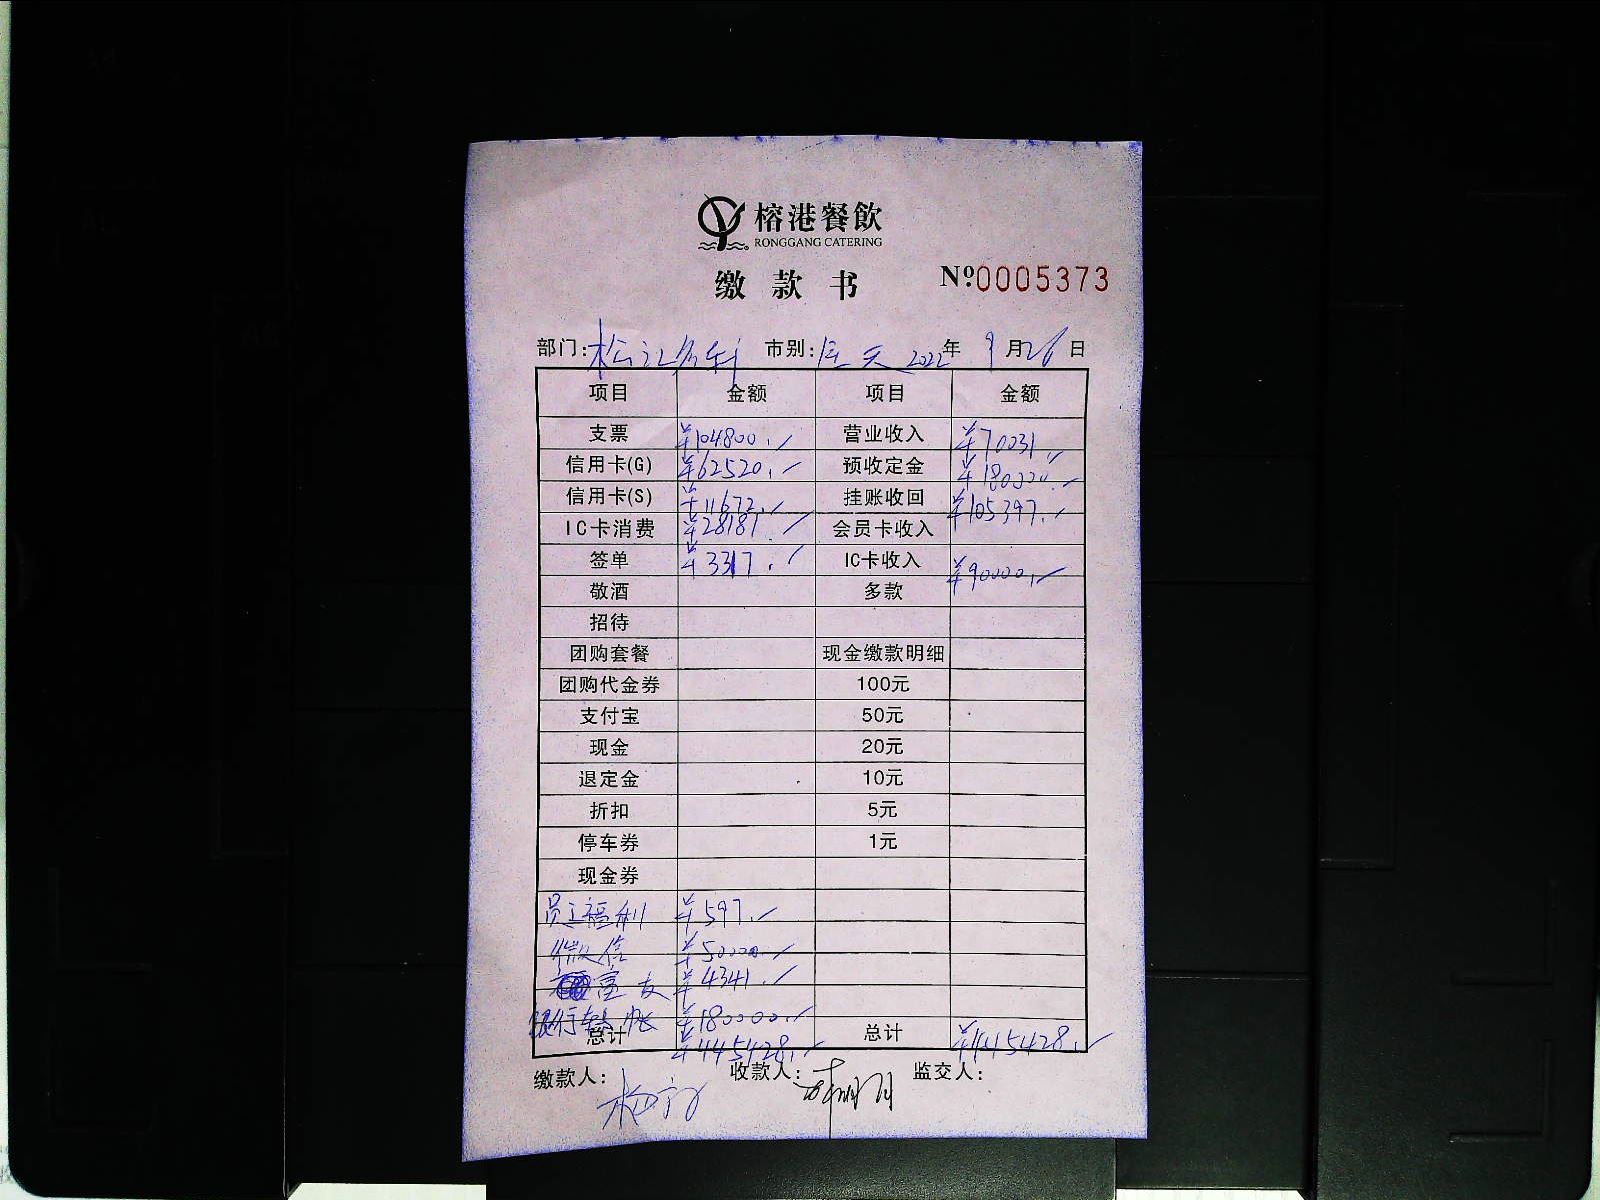 榕港餐飲
RONGGANG CATERING
缴款书 Nº:0005373
部门:松江 市别:全天 2022年 9月26日
项目 金额 项目 金额
支票 ¥104800. 营业收入 ¥70031.
信用卡(G) ¥62520. 预收定金 ¥180000.
信用卡(S) ¥11672. 挂账收回 ¥105397.
IC卡消费 ¥28181. 会员卡收入
签单 ¥3317. IC卡收入 ¥90000.
敬酒 多款
招待
团购套餐 现金缴款明细
团购代金券 100元
支付宝 50元
现金 20元
退定金 10元
折扣 5元
停车券 1元
现金券
员工福利 ¥597.
微信 ¥50000.
友 ¥4341.
银行转帐 ¥180000.
总计 ¥445428. 总计 ¥445428.
缴款人: 收款人: 监交人: